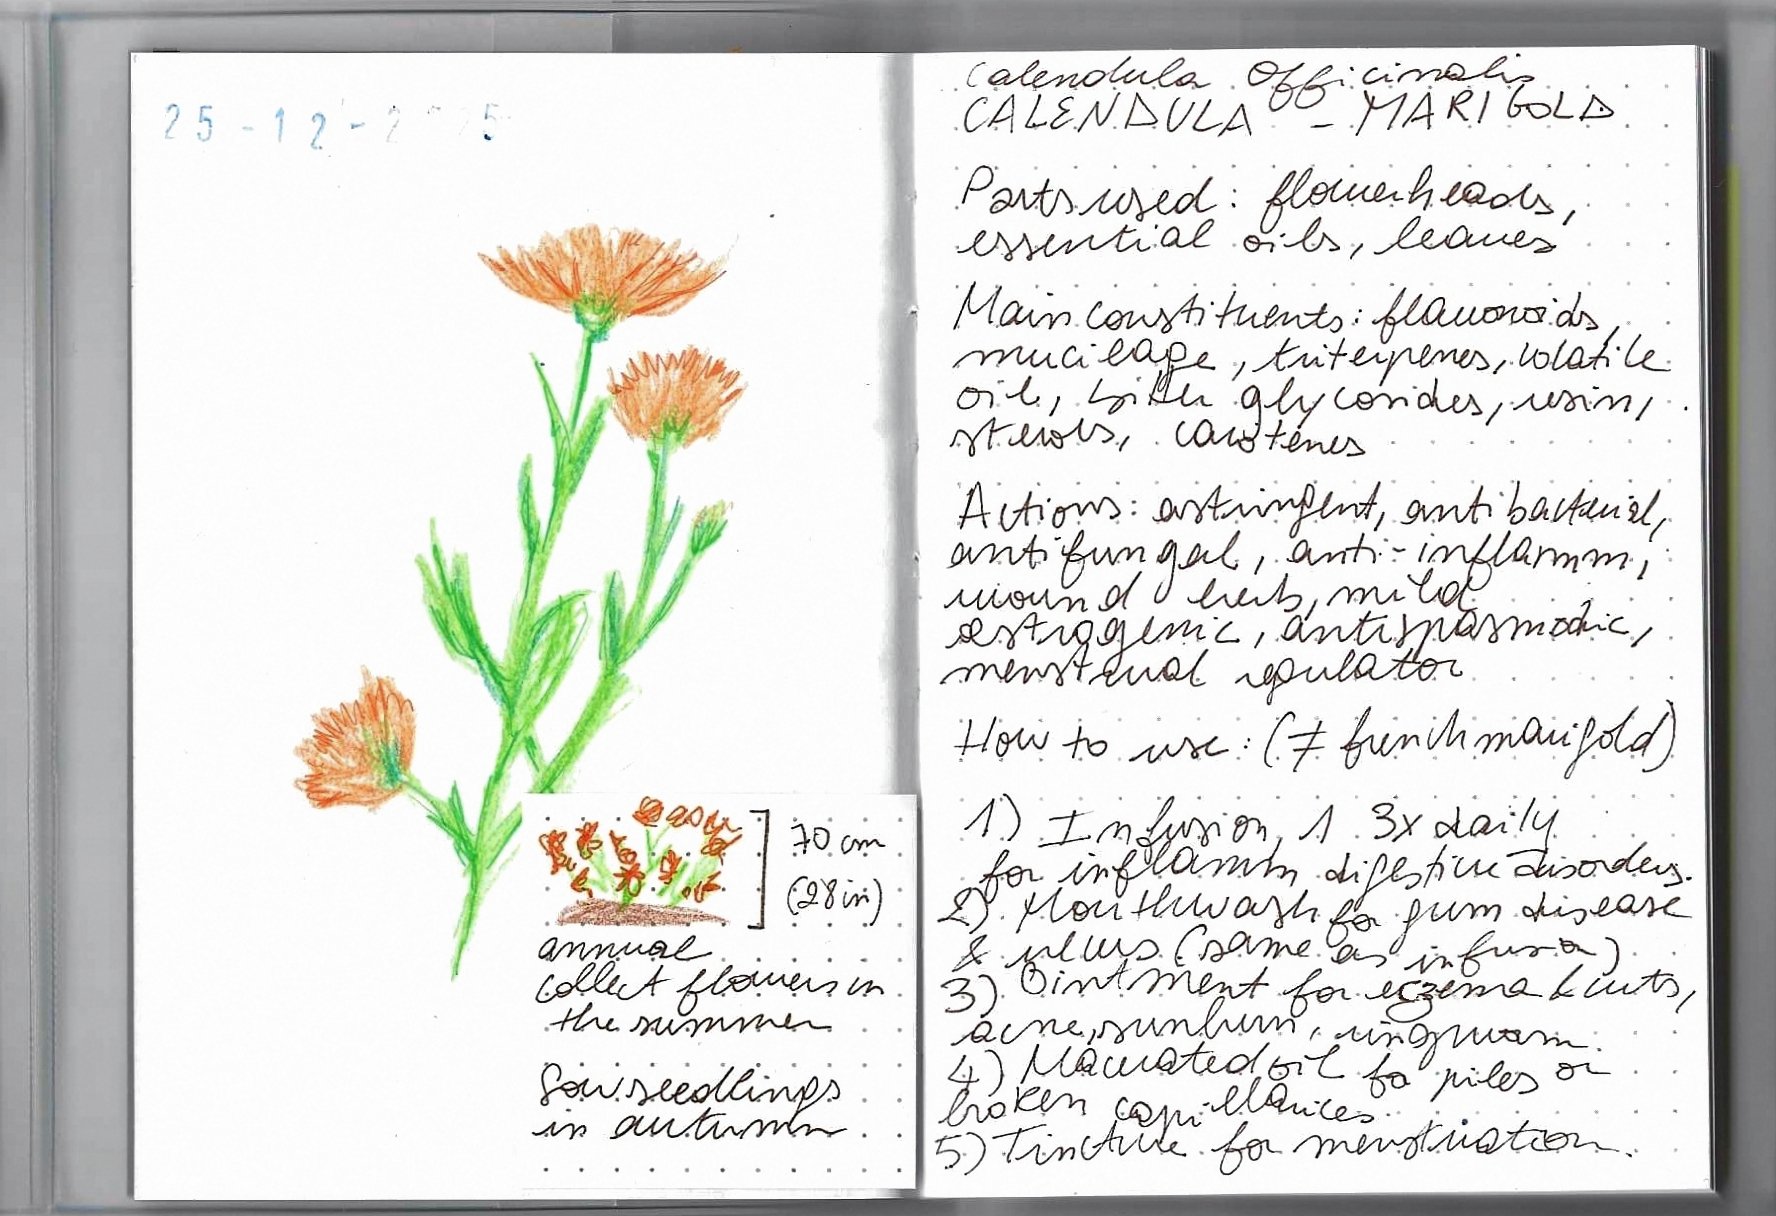 25-12-2 25
70 cm
(28in)
annual
collect flowers in
the summer
Sow seedlings
in autumn
Calendula Officinalis
CALENDULA - MARIGOLD
Parts used: flowerheads,
essential oils, leaves
Main constituents: flavonoids,
mucilage, triterpenes, volatile
oil, bitter glycosides, resin,
sterols, carotenes
Actions: astringent, antibacterial,
antifungal, anti-inflamm,
wound herb, mild
œstrogenic, antispasmodic,
menstrual regulator
How to use: (≠ french marigold)
1) Infusion, 1 3x daily
for inflamm digestive disorders.
2) Mouthwash for gum disease
& ulcers (same as infusion)
3) Ointment for eczema & cuts,
acne, sunburn, ringworm.
4) Macerated oil for piles or
broken capillarices
5) Tincture for menstruation.